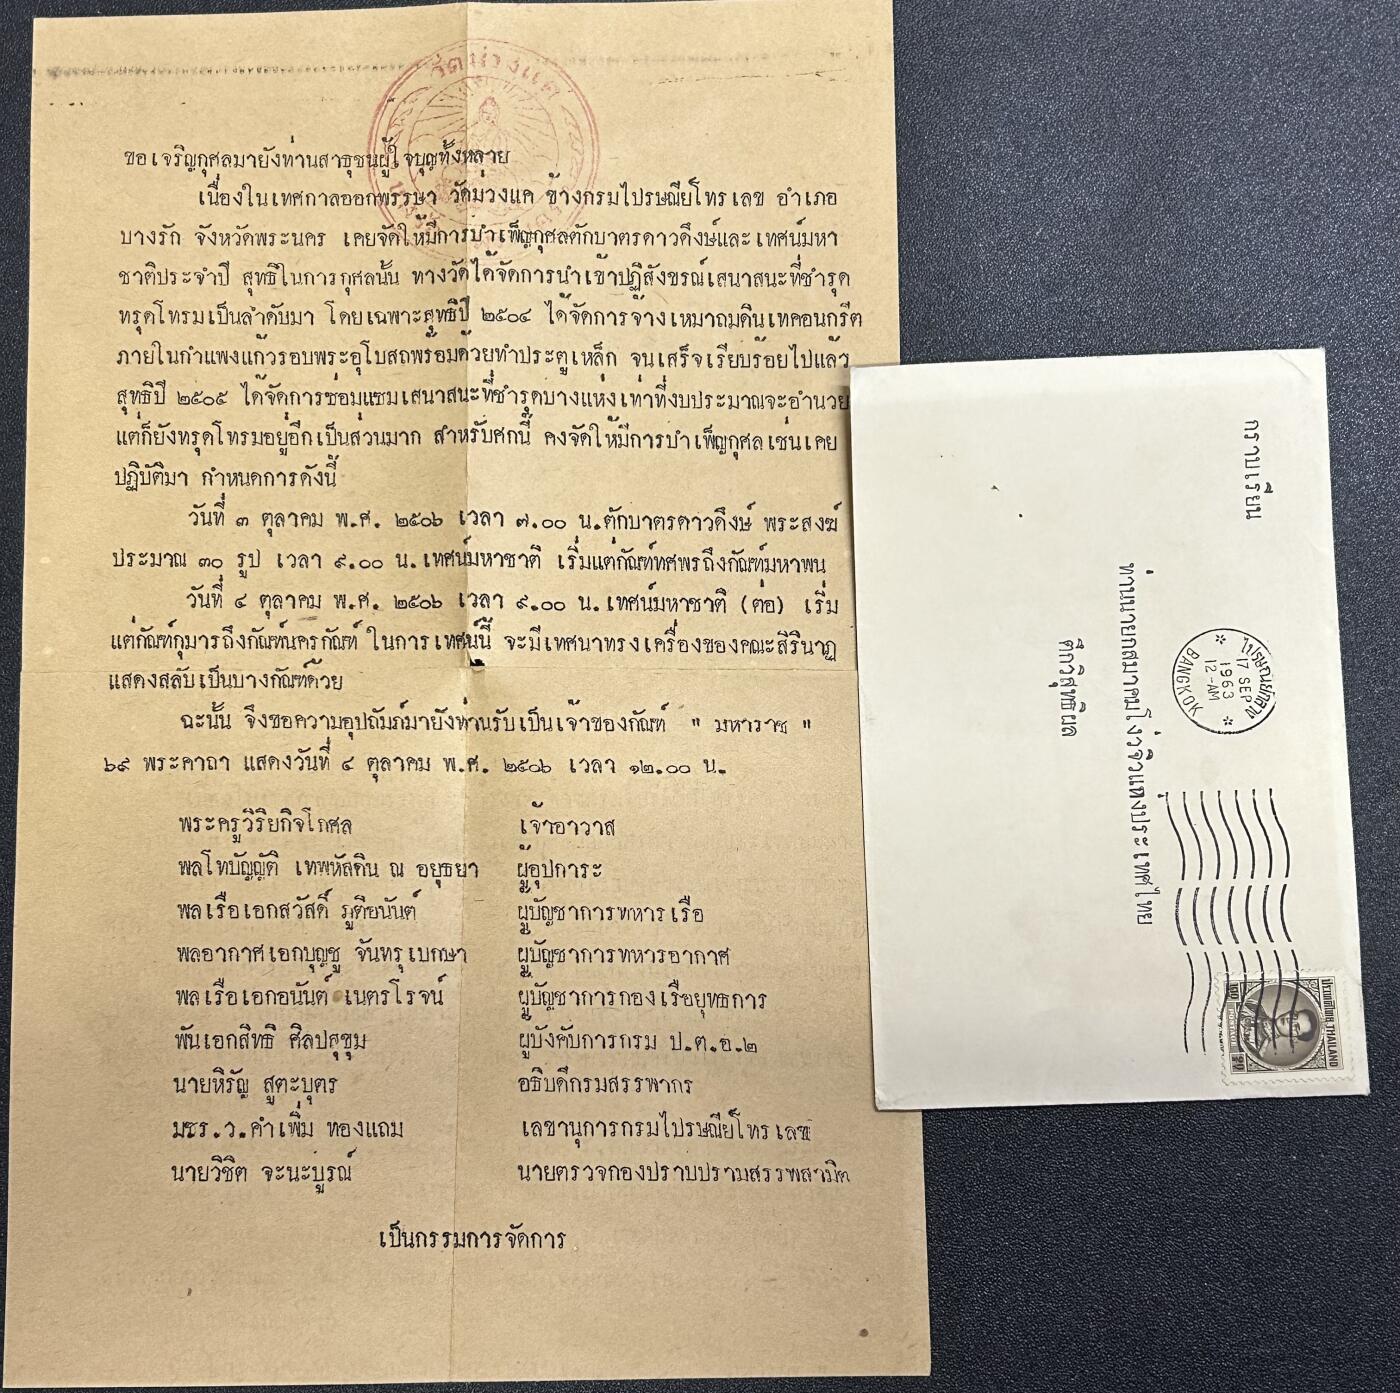 วัดม่วงแค
ขอเจริญกุศลมายังท่านสาธุชนผู้ใจบุญทั้งหลาย
เนื่องในเทศกาลออกพรรษา วัดม่วงแค ข้างกรมไปรษณีย์โทรเลข อำเภอ
บางรัก จังหวัดพระนคร เคยจัดให้มีการบำเพ็ญกุศลตักบาตรดาวดึงษ์และเทศน์มหา
ชาติประจำปี สุทธิในการกุศลนั้น ทางวัดได้จัดการนำเข้าปฏิสังขรณ์เสนาสนะที่ชำรุด
ทรุดโทรมเป็นลำดับมา โดยเฉพาะสุทธิปี ๒๕๐๔ ได้จัดการจ้างเหมาถมดินเทคอนกรีต
ภายในกำแพงแก้วรอบพระอุโบสถพร้อมด้วยทำประตูเหล็ก จนเสร็จเรียบร้อยไปแล้ว
สุทธิปี ๒๕๐๕ ได้จัดการซ่อมแซมเสนาสนะที่ชำรุดบางแห่งเท่าที่งบประมาณจะอำนวย
แต่ก็ยังทรุดโทรมอยู่อีกเป็นส่วนมาก สำหรับศกนี้ คงจัดให้มีการบำเพ็ญกุศลเช่นเคย
ปฏิบัติมา กำหนดการดังนี้
วันที่ ๓ ตุลาคม พ.ศ. ๒๕๐๖ เวลา ๗.๐๐ น.ตักบาตรดาวดึงษ์ พระสงฆ์
ประมาณ ๓๐ รูป เวลา ๙.๐๐ น.เทศน์มหาชาติ เริ่มแต่กัณฑ์ทศพรถึงกัณฑ์มหาพน
วันที่ ๔ ตุลาคม พ.ศ. ๒๕๐๖ เวลา ๙.๐๐ น.เทศน์มหาชาติ (ต่อ) เริ่ม
แต่กัณฑ์กุมารถึงกัณฑ์นครกัณฑ์ ในการเทศน์นี้ จะมีเทศนาทรงเครื่องของคณะสิรินาฏ
แสดงสลับเป็นบางกัณฑ์ด้วย
ฉะนั้น จึงขอความอุปถัมภ์มายังท่านรับเป็นเจ้าของกัณฑ์ " มหาราช "
๖๙ พระคาถา แสดงวันที่ ๔ ตุลาคม พ.ศ. ๒๕๐๖ เวลา ๑๒.๐๐ น.
พระครูวิริยกิจโกศล เจ้าอาวาส
พลโทบัญญัติ เทพหัสดิน ณ อยุธยา ผู้อุปการะ
พลเรือเอกสวัสดิ์ ภูติอนันต์ ผู้บัญชาการทหารเรือ
พลอากาศเอกบุญชู จันทรุเบกษา ผู้บัญชาการทหารอากาศ
พลเรือเอกอนันต์ เนตรโรจน์ ผู้บัญชาการกองเรือยุทธการ
พันเอกสิทธิ ศิลปสุขุม ผู้บังคับการกรม ป.ต.อ.๒
นายหิรัญ สูตะบุตร อธิบดีกรมสรรพากร
มรร.ว.คำเพิ่ม ทองแถม เลขานุการกรมไปรษณีย์โทรเลข
นายวิชิต จะนะบูรณ์ นายตรวจกองปราบปรามสรรพสามิต
เป็นกรรมการจัดการ
กราบเรียน
ท่านนายกสมาคมโง้วจิวแห่งประเทศไทย
ตึกวิสุทธิผล
ไปรษณีย์กลาง
17 SEP
1963
12-AM
BANGKOK
ประเทศไทย THAILAND